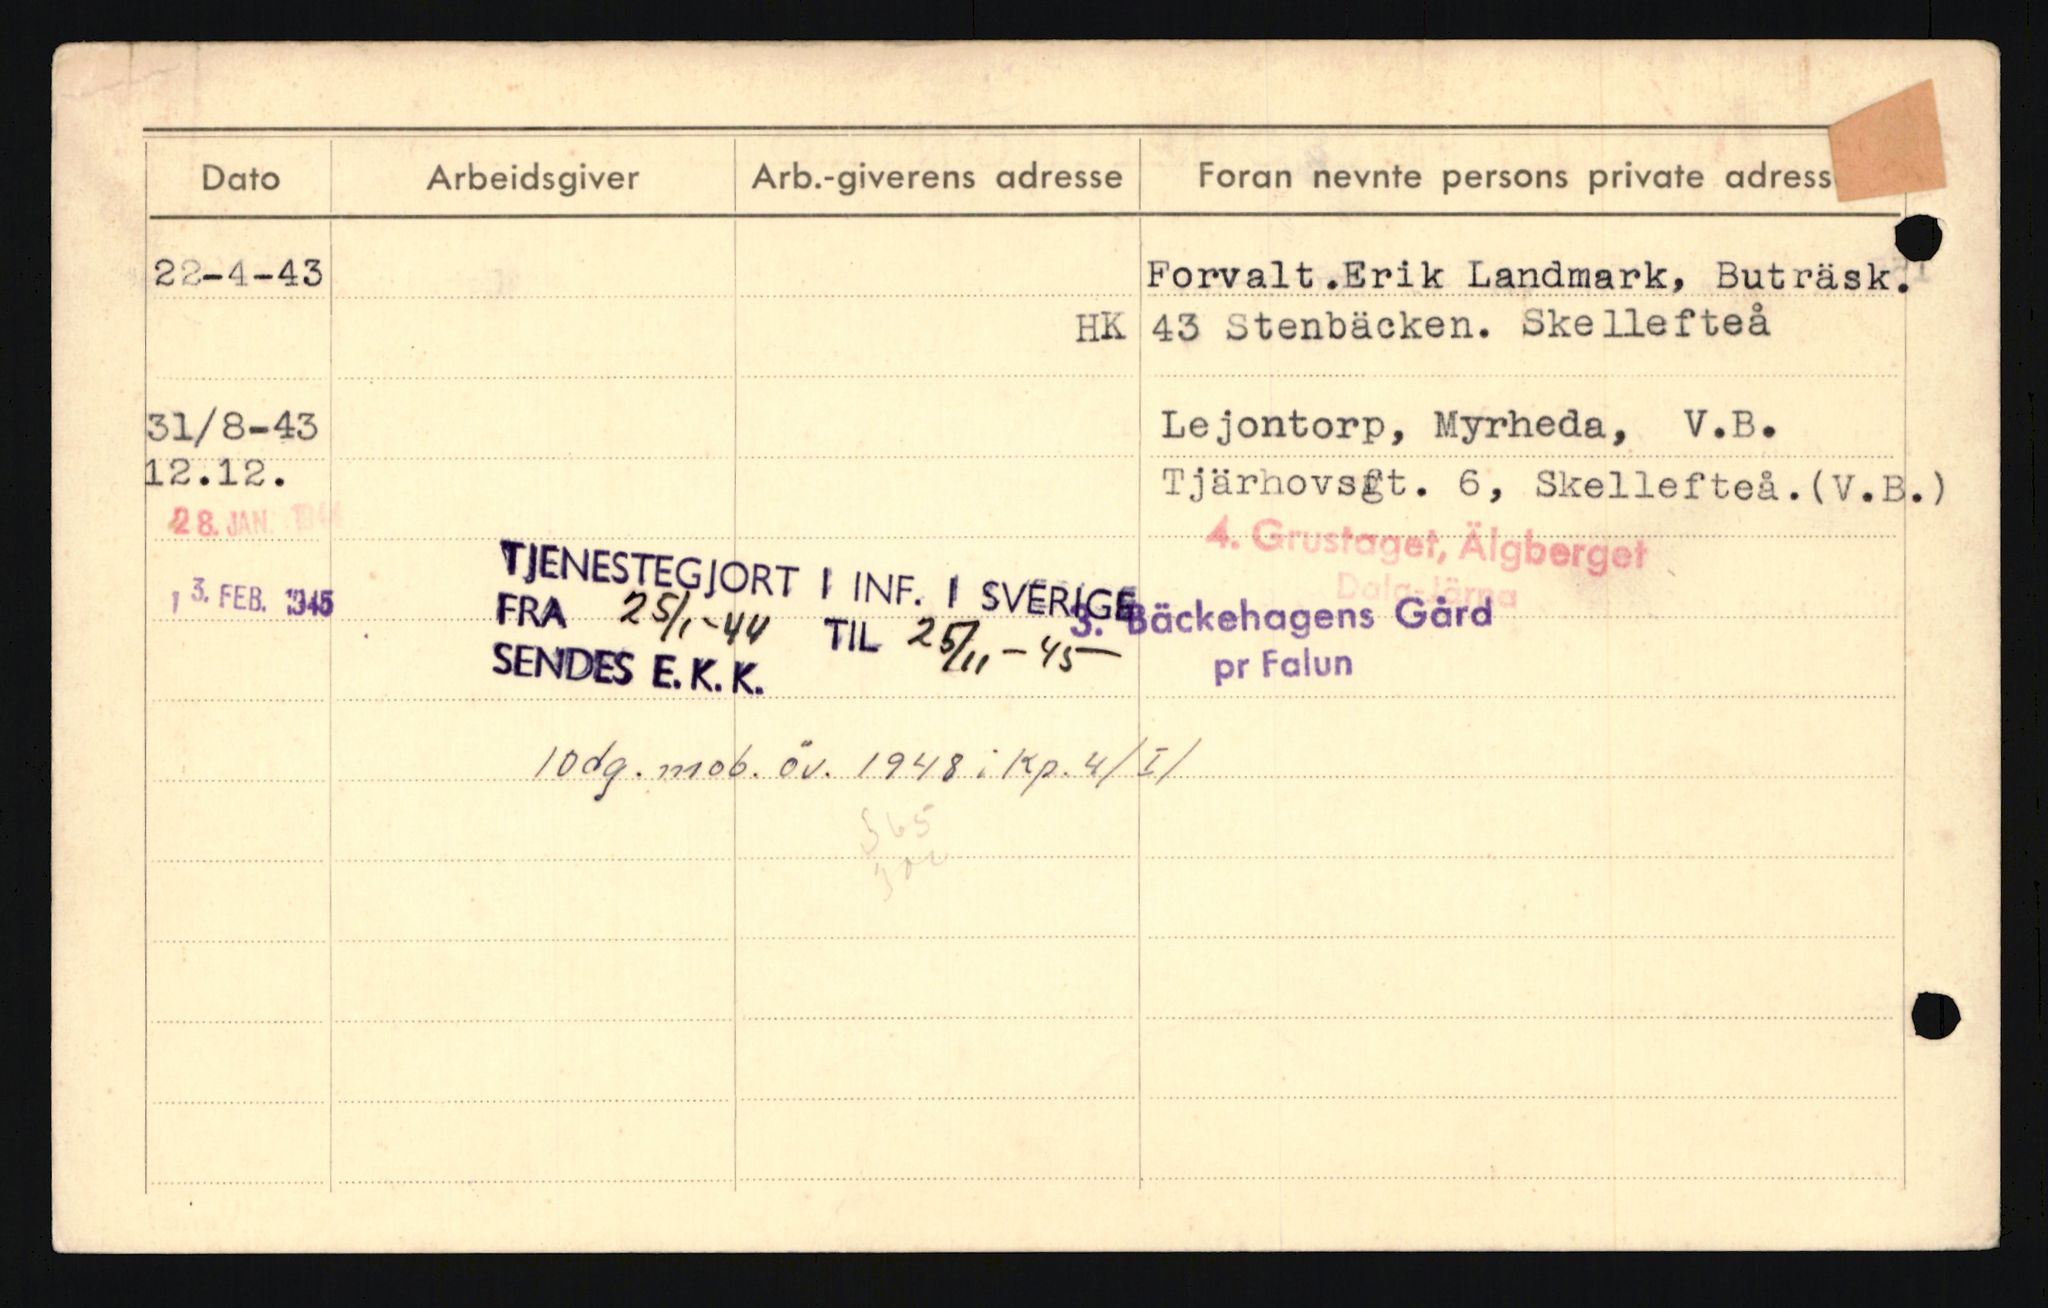 Dato Arbeidsgiver Arb.-giverens adresse Foran nevnte persons private adress
22-4-43 Forvalt.Erik Landmark, Buträsk.
HK 43 Stenbäcken. Skellefteå
31/8-43 Lejontorp, Myrheda, V.B.
12.12. Tjärhovsgt. 6, Skellefteå.(V.B.)
28. JAN. 1944 4. Grustaget, Älgberget
Dala-Järna
TJENESTEGJORT I INF. I SVERIGE
13. FEB. 1945 FRA 25/1-44 TIL 25/11-45 3. Bäckehagens Gård
SENDES E.K.K. pr Falun
10dg. mob. öv. 1948 i Kp. 4/I/
365